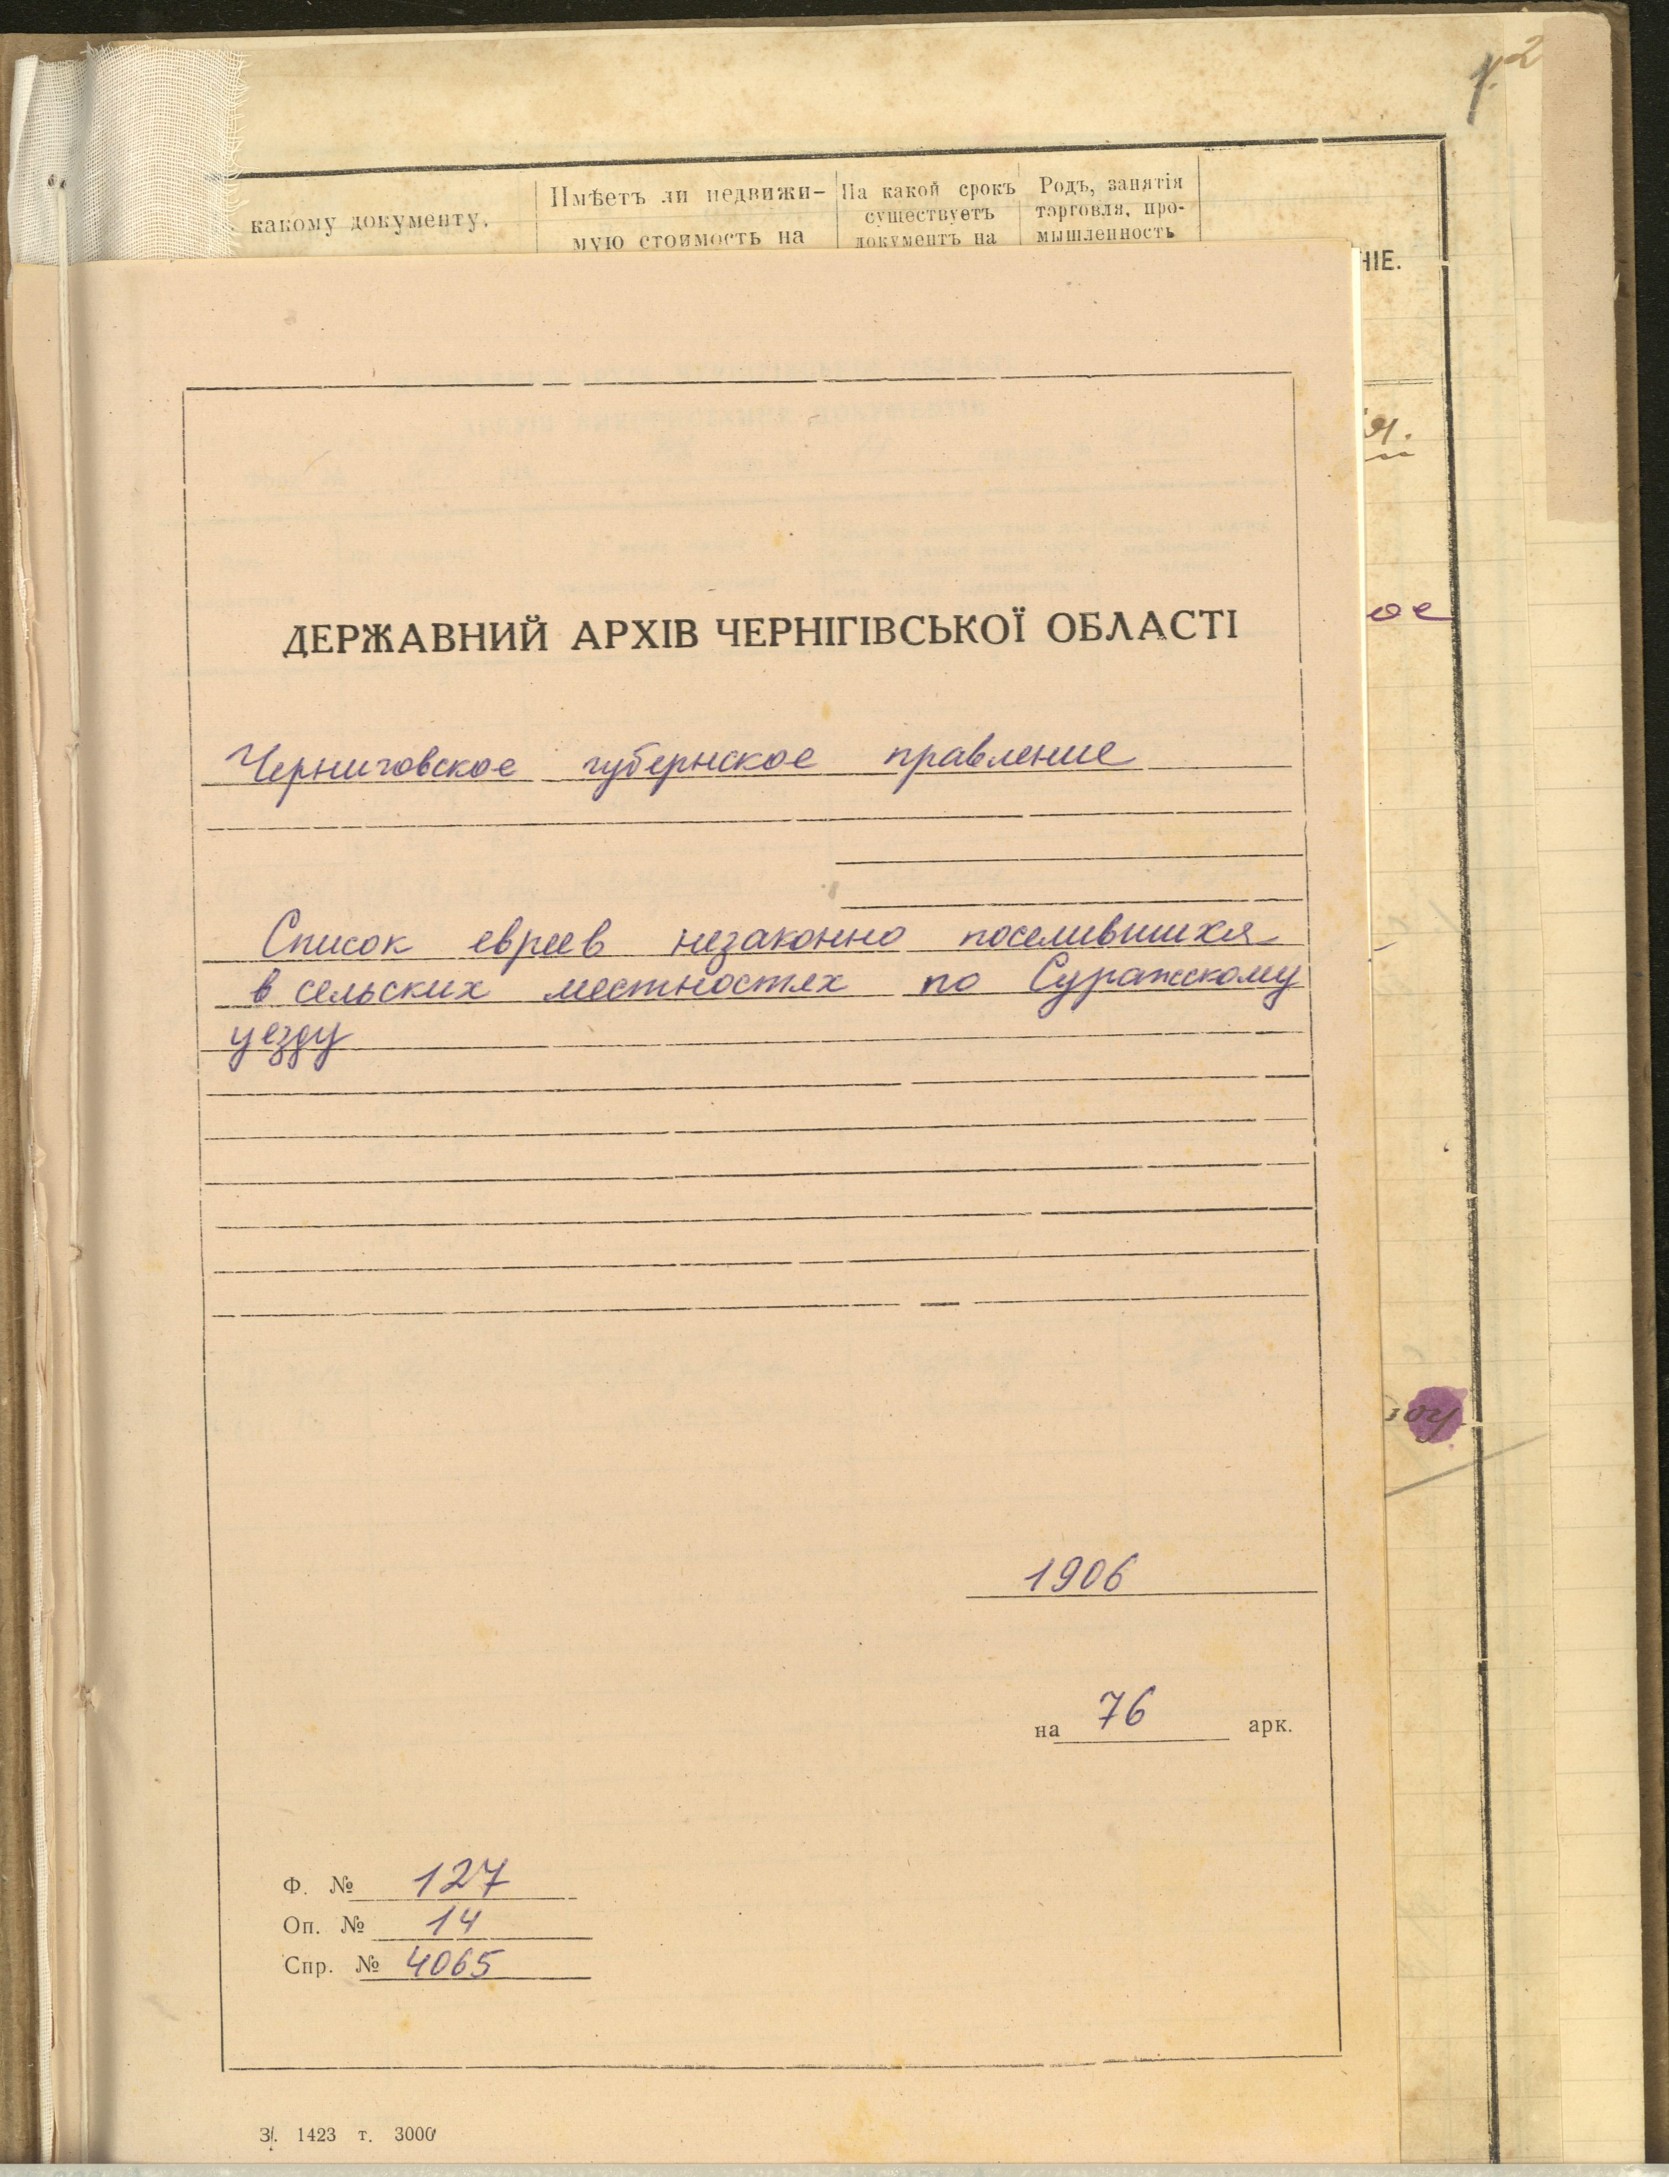 2
какому документу.
Имѣетъ ли недвижи-
мую стоимость на
На какой срокъ
существуетъ
документъ на
Родъ, занятія
торговля, про-
мышленность
НІЕ.
ДЕРЖАВНИЙ АРХІВ ЧЕРНІГІВСЬКОЇ ОБЛАСТІ
Черниговское губернское правление
Список евреев незаконно поселившихся
в сельских местностях по Суражскому
уезду
ое
1906
на 76 арк.
Ф. № 127
Оп. № 14
Спр. № 4065
З. 1423 т. 3000